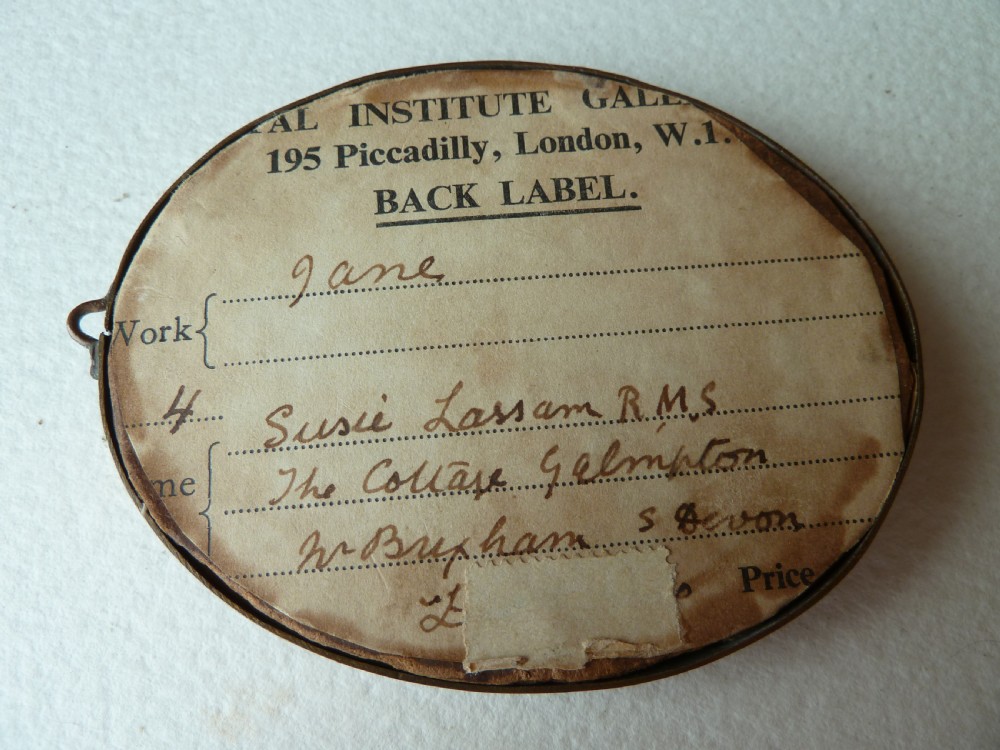 YAL INSTITUTE GALL
195 Piccadilly, London, W.1.
BACK LABEL.
Jane
Work
4 Susie Lassam R.M.S
me The Cottage Galmpton
Nr Brixham S Devon
£ Price